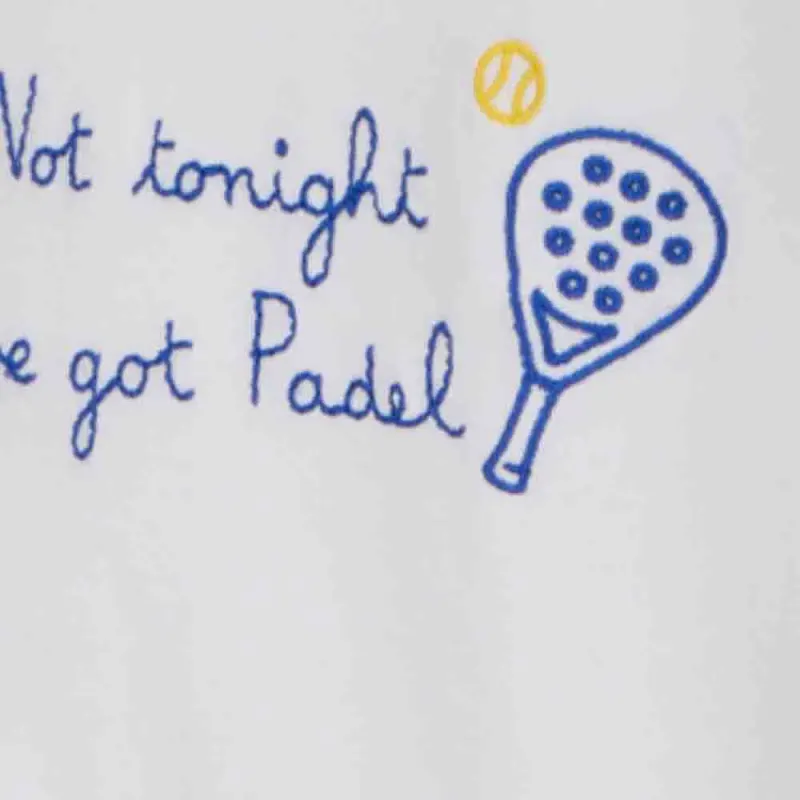 Not tonight
e got Padel